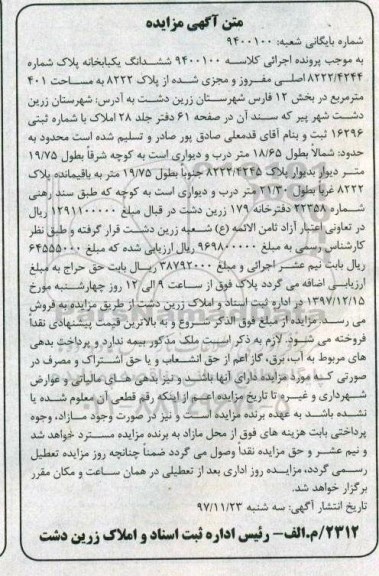 متن آگهی مزایده
شماره بایگانی شعبه: ۹۴۰۰۱۰۰
به موجب پرونده اجرائی کلاسه ۹۴۰۰۱۰۰ ششدانگ یکبابخانه پلاک شماره
۸۲۲۲/۴۲۴۴ اصلی مفروز و مجزی شده از پلاک ۸۲۲۲ به مساحت ۴۰۱
مترمربع در بخش ۱۲ فارس شهرستان زرین دشت به آدرس: شهرستان زرین
دشت شهر پیر که سند آن در صفحه ۶۱ دفتر جلد ۲۸ املاک با شماره ثبتی
۱۶۲۹۶ ثبت و بنام آقای قدمعلی صادق پور صادر و تسلیم شده است محدود به
حدود: شمالاً بطول ۱۸/۶۵ متر درب و دیواری است به کوچه شرقاً بطول ۱۹/۷۵
متر دیوار بدیوار پلاک ۸۲۲۲/۴۲۴۵ جنوباً بطول ۱۹/۷۵ متر به باقیمانده پلاک
۸۲۲۲ غرباً بطول ۲۱/۳۰ متر درب و دیواری است به کوچه که طبق سند رهنی
شماره ۲۲۳۵۸ دفترخانه ۱۷۹ زرین دشت در قبال مبلغ ۱۲۹۱۱۰۰۰۰۰ ریال
در رهن تعاونی اعتبار آزاد ثامن الائمه (ع) شعبه زرین دشت قرار گرفته و طبق نظر
کارشناس رسمی به مبلغ ۹۶۹۸۰۰۰۰۰ ریال ارزیابی شده که مبلغ ۶۴۵۵۵۰۰۰
ریال بابت نیم عشر اجرائی و مبلغ ۳۸۷۹۲۰۰۰ ریال بابت حق حراج به مبلغ
ارزیابی اضافه می گردد پلاک فوق از ساعت ۹ الی ۱۲ روز چهارشنبه مورخ
۱۳۹۷/۱۲/۱۵ در اداره ثبت اسناد و املاک زرین دشت از طریق مزایده به فروش
می رسد. مزایده از مبلغ فوق الذکر شروع و به بالاترین قیمت پیشنهادی نقدا
فروخته می شود. لازم به ذکر است ملک مذکور بیمه ندارد و پرداخت بدهی
های مربوط به آب، برق، گاز اعم از حق انشعاب و یا حق اشتراک و مصرف در
صورتی که مورد مزایده دارای آنها باشد و نیز بدهی های مالیاتی و عوارض
شهرداری و غیره تا تاریخ مزایده اعم از اینکه رقم قطعی آن معلوم شده یا
نشده باشد به عهده برنده مزایده است و نیز در صورت وجود مازاد، وجوه
پرداختی بابت هزینه های فوق از محل مازاد به برنده مزایده مسترد خواهد شد
و نیم عشر و حق مزایده نقدا وصول می گردد ضمناً چنانچه روز مزایده تعطیل
رسمی گردد، مزایده روز اداری بعد از تعطیلی در همان ساعت و مکان مقرر
برگزار خواهد شد.
تاریخ انتشار آگهی: سه شنبه ۹۷/۱۱/۲۳
۲۳۱۲/م.الف- رئیس اداره ثبت اسناد و املاک زرین دشت